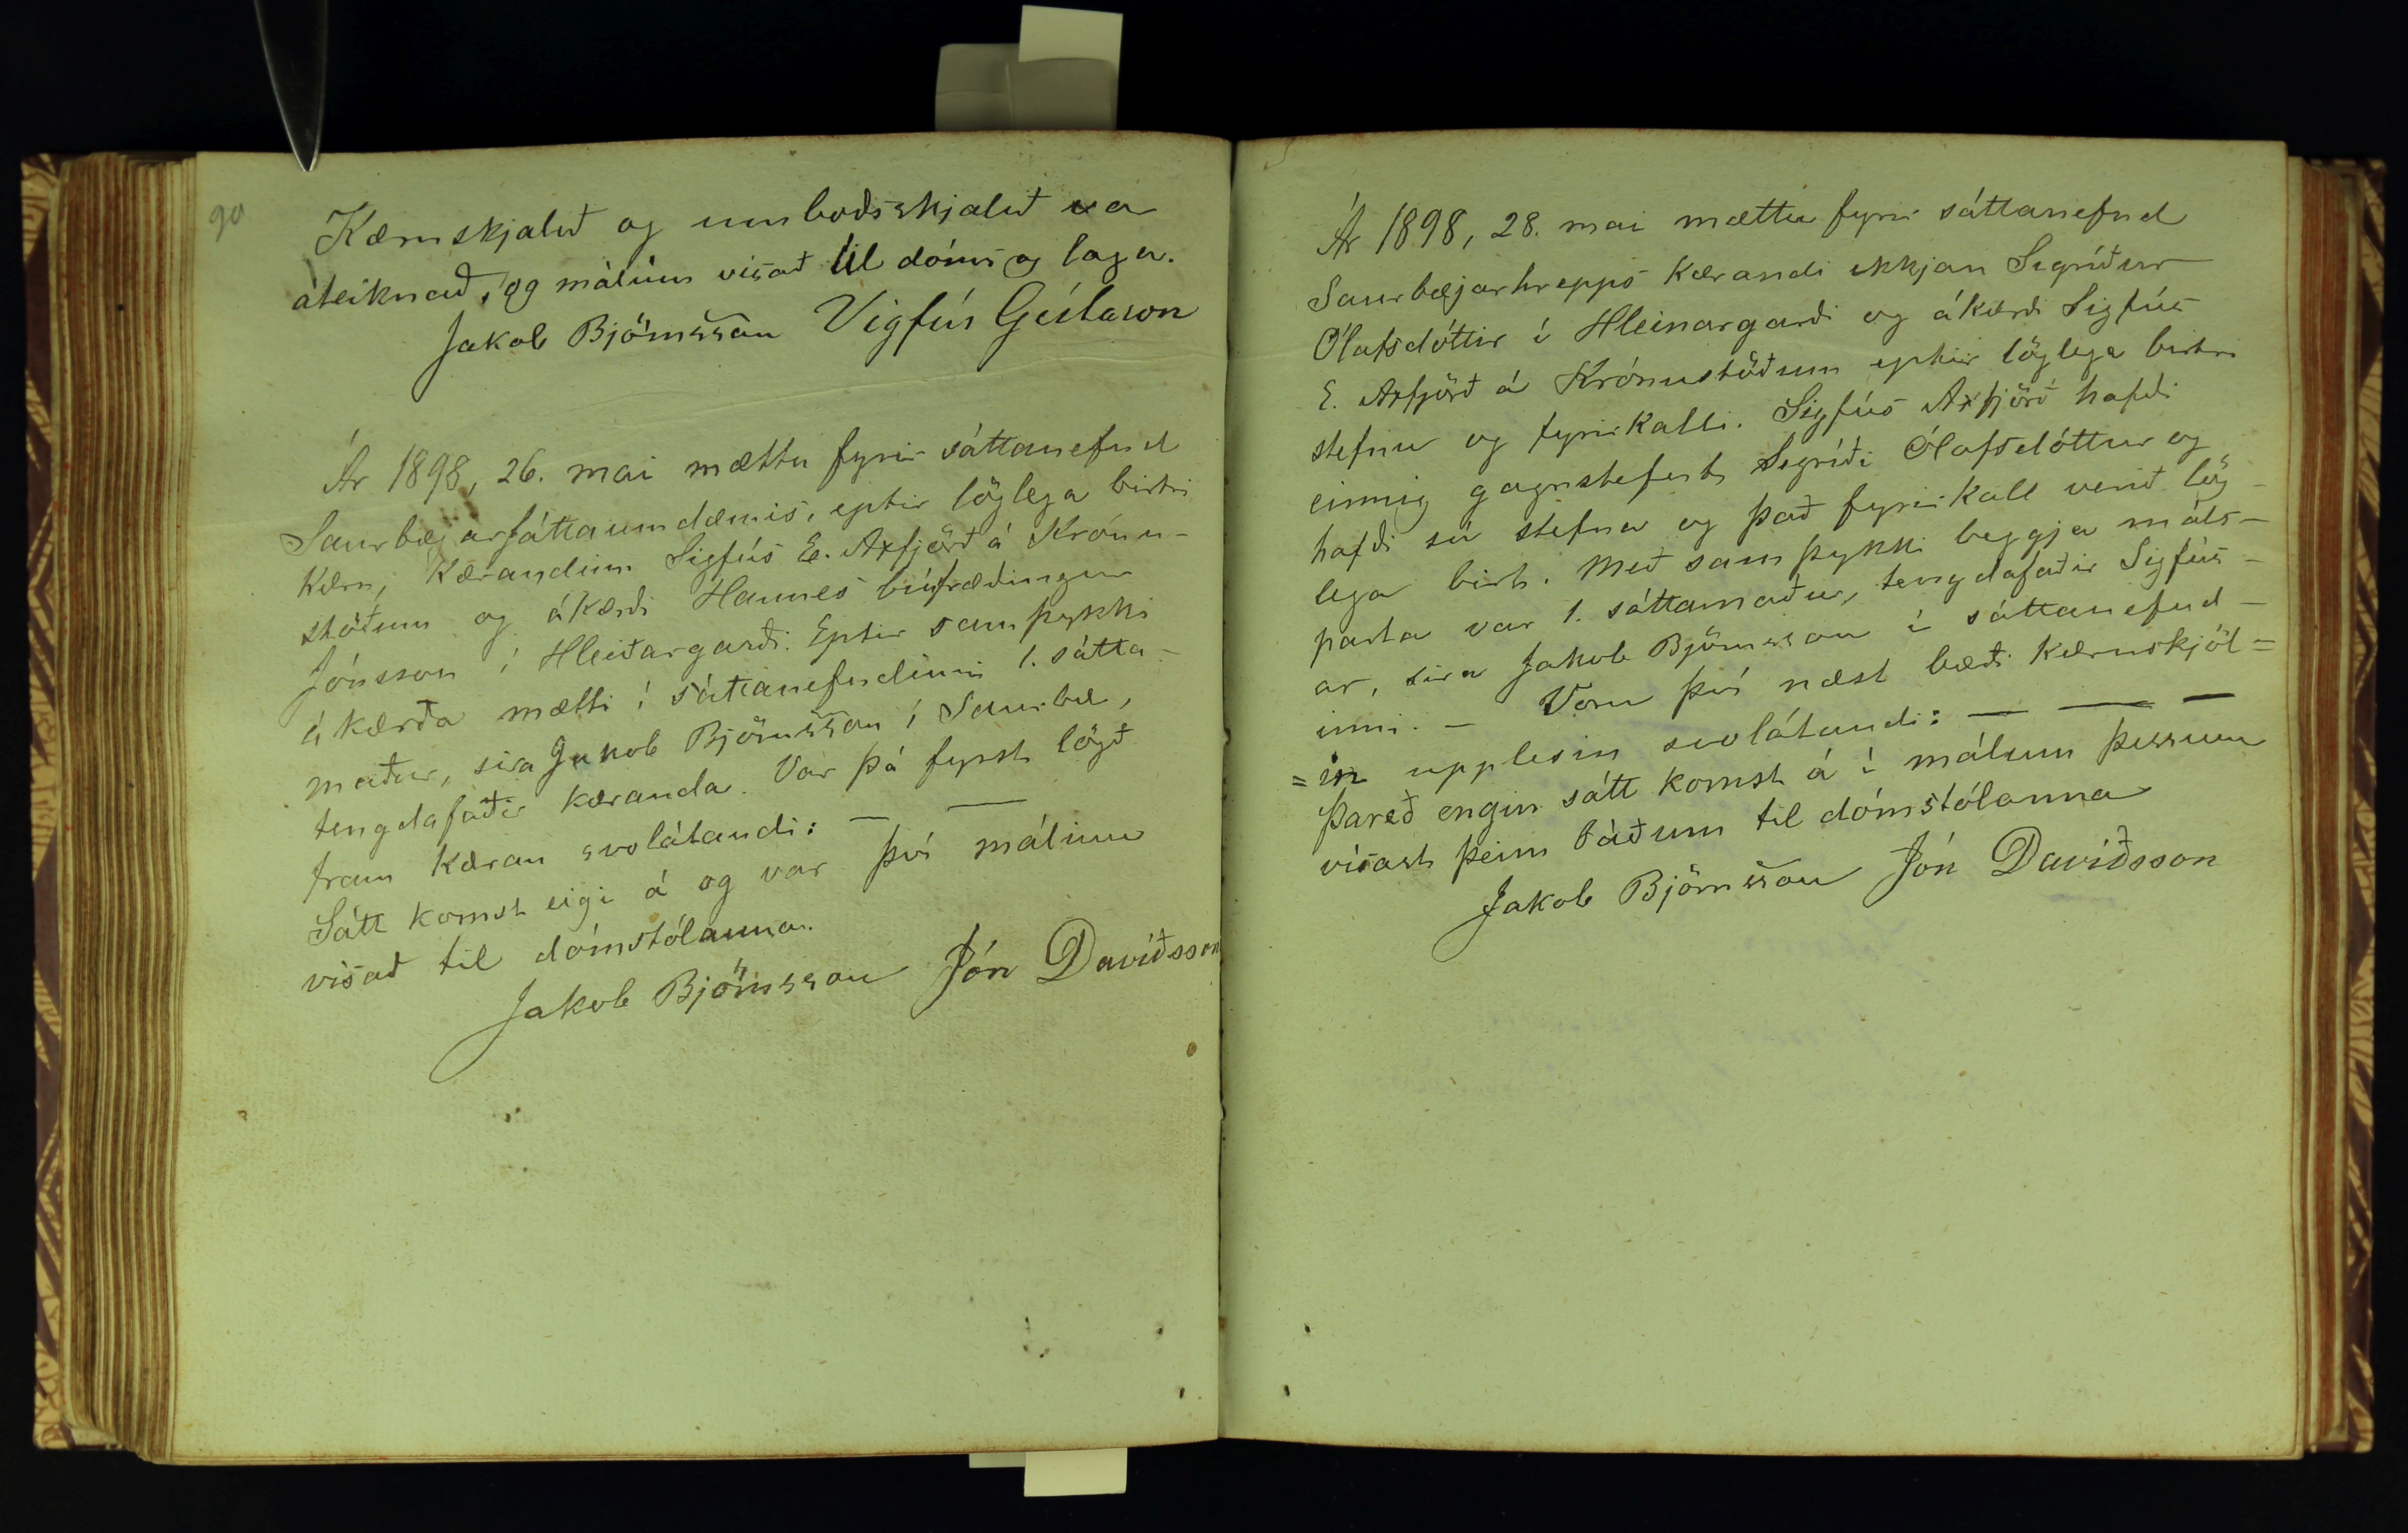 90
Kæruskjalið og umboðsskjalið var
áteiknað, og málinu vísað til dóms og laga.
Jakob Björnsson Vigfús Gíslason
Ár 1898, 26. mai mættu fyrir sáttanefnd
Saurbæjarsáttaumdæmis, eptir löglega birtri
kæru, kærandinn Sigfús E. Axfjörð á Krónu-
stöðum og ákærði Hannes búfræðingur
Jónsson í Hleiðargarði. Eptir samþykki
ákærða mætti í sáttanefndinni 1. sátta-
maður, sira Jakob Björnsson í Saurbæ,
tengdafaðir kæranda. Var þá fyrst lögð
fram kæran svolátandi: — —
Sátt komst eigi á og var því málinu
vísað til dómstólanna.
Jakob Björnsson Jón Davíðsson
Ár 1898, 28. mai mættu fyrir sáttanefnd
Saurbæjarhrepps kærandi ekkjan Sigríður
Ólafsdóttir í Hleinargarði og ákærði Sigfús
E. Axfjörð á Krónustöðum eptir löglega birtri
stefnu og fyrirkalli. Sigfús Axfjörð hafði
einnig gagnstefnt Sigríði Ólafsdóttur og
hafði sú stefna og það fyrirkall verið lög-
lega birt. Með samþykki beggja máls-
parta var 1. sáttamaður, tengdafaðir Sigfús-
ar, sira Jakob Björnsson í sáttanefnd-
inni. — Voru því næst bæði kæruskjöl=
=in upplesin svolátandi: — — —
Þareð engin sátt komst á í málum þessum
vísast þeim báðum til dómstólanna
Jakob Björnsson Jón Davíðsson